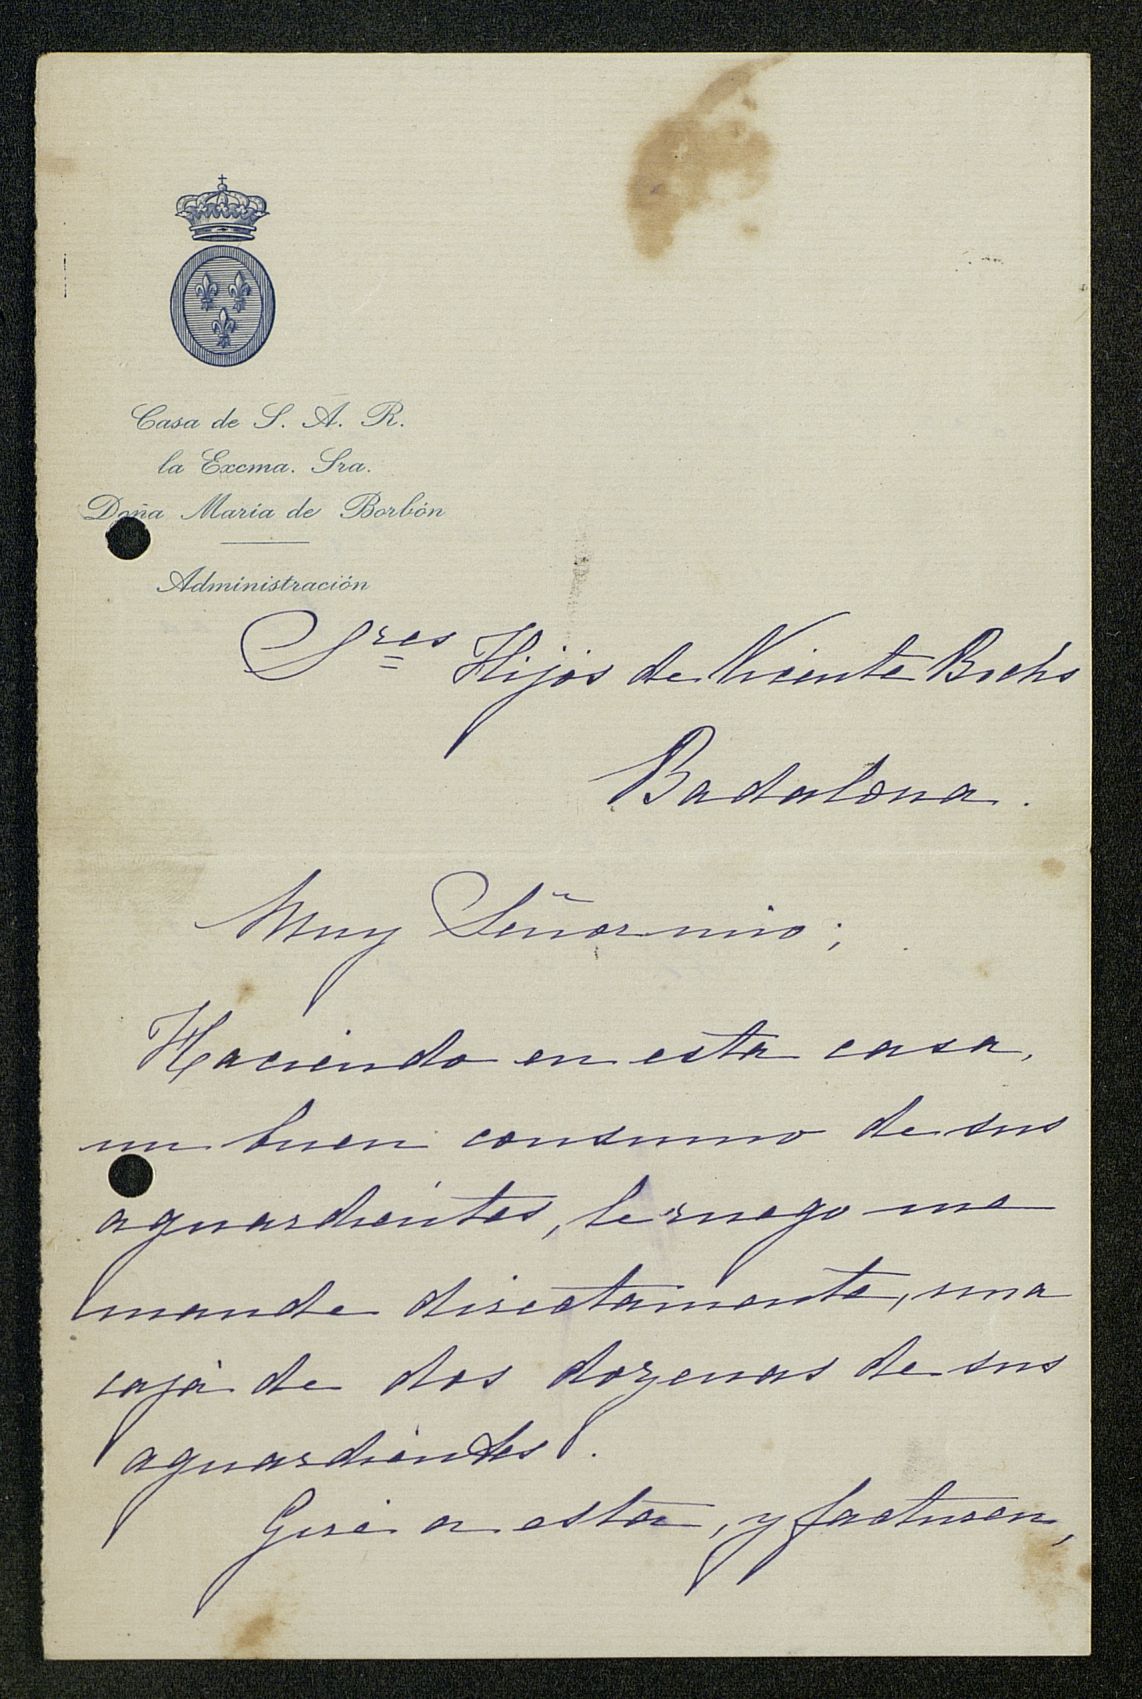 Casa de S. A. R.
la Excma. Sra.
Doña María de Borbón
Administración
Sres Hijos de Vicente Bochs
Badalona.
Muy Señor mio;
Haciendo en esta casa,
un buen consumo de sus
aguardientes, le ruego me
mande directamente, una
caja de dos dozenas de sus
aguardientes.
Gire a esta, y facturen,